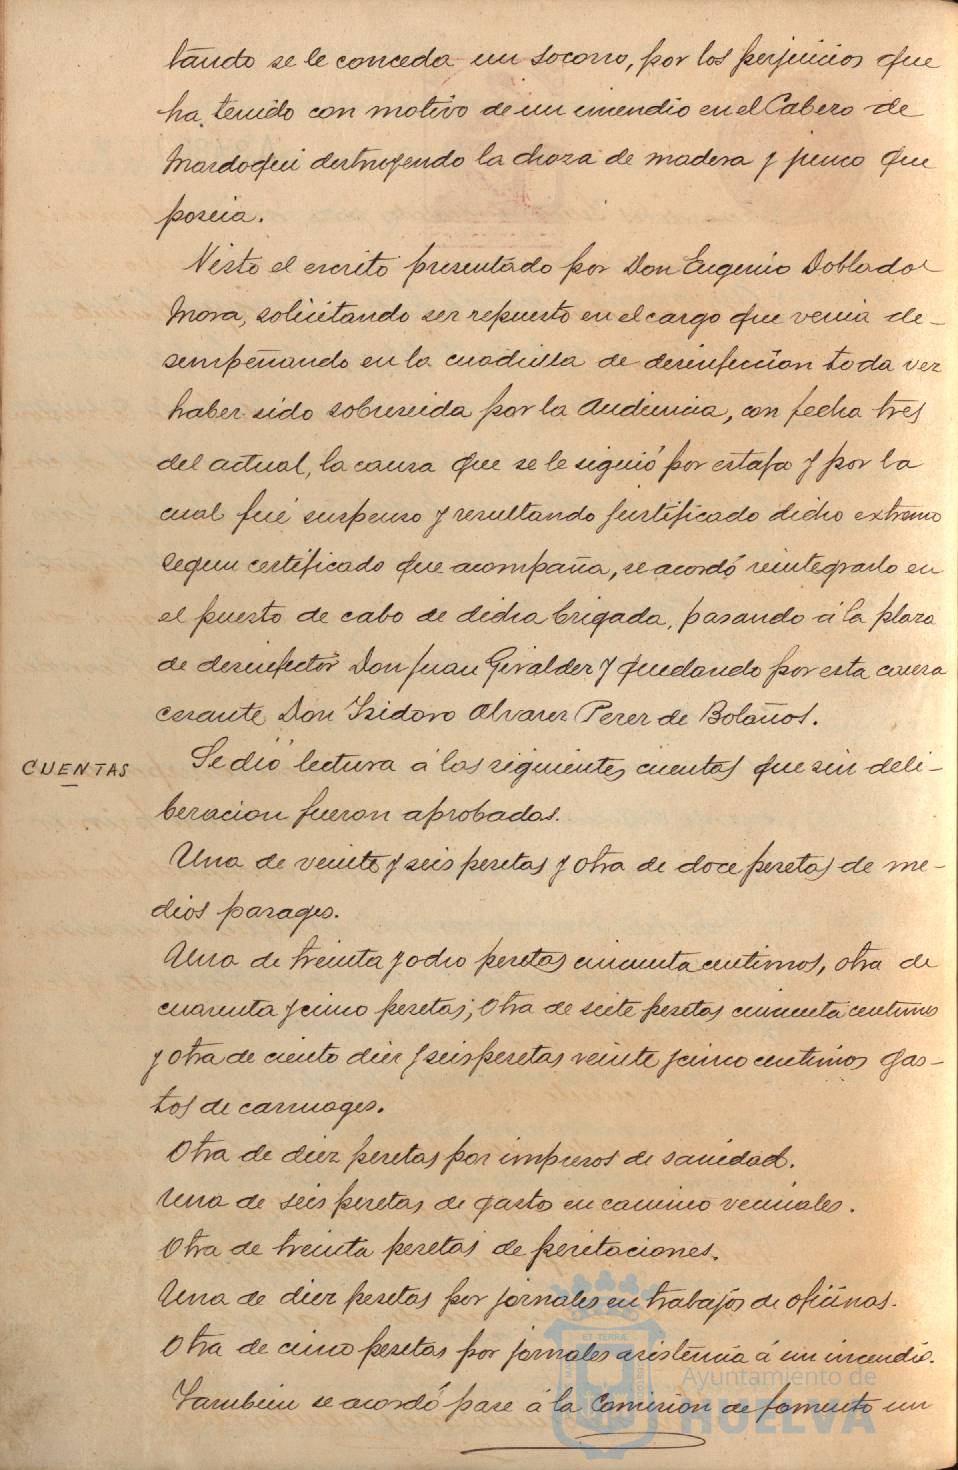 tando se le conceda un socorro, por los perjuicios que
ha tenido con motivo de un incendio en el Cabezo de
Mardoqui destruyendo la choza de madera y junco que
poseia.
Visto el escrito presentado por Don Eugenio Doblado
Mora, solicitando ser repuesto en el cargo que venia de-
sempeñando en la cuadrilla de desinfeccion toda vez
haber sido sobreseida por la Audiencia, con fecha tres
del actual, la causa que se le siguió por estafa y por la
cual fué suspenso y resultando justificado dicho extremo
segun certificado que acompaña, se acordó reintegrarlo en
el puesto de cabo de dicha brigada, pasando á la plaza
de desinfector Don Juan Giralder y quedando por esta causa
cesante Don Isidoro Alvarez Perez de Bolaños.
CUENTAS
Se dió lectura á las siguientes cuentas que sin deli-
beracion fueron aprobadas.
Una de veinte y seis pesetas y otra de doce pesetas de me-
dios parages.
Una de treinta y ocho pesetas cincuenta centimos, otra de
cuarenta y cinco pesetas; otra de siete pesetas cincuenta centimos
y otra de ciento diez y seis pesetas veinte y cinco centimos gas-
tos de carruages.
Otra de diez pesetas por impresos de sanidad.
Una de seis pesetas de gasto en camino vecinales.
Otra de treinta pesetas de peritaciones.
Una de diez pesetas por jornales en trabajos de oficinas.
Otra de cinco pesetas por jornales asistencia á un incendio.
Tambien se acordó pase á la Comision de fomento un
Ayuntamiento de
HUELVA